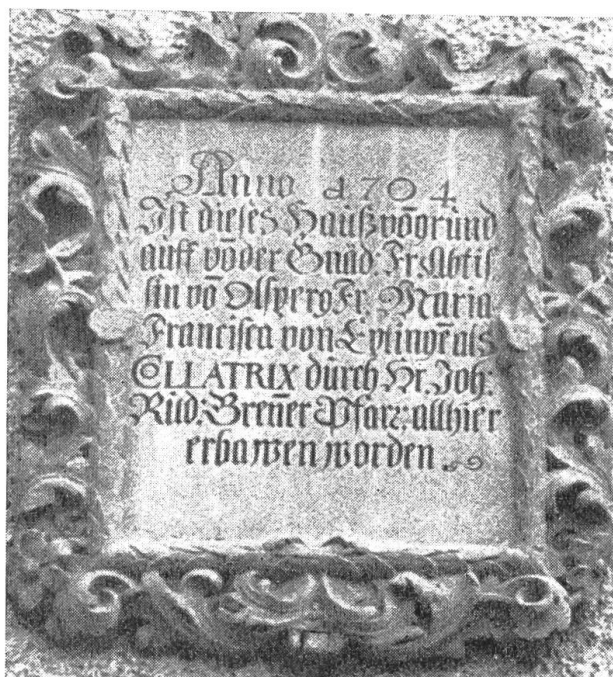 Anno 1704
Ist dieses Haüß vō grund
auff vō der Gnäd. Fr. Abtis
sin vō Olsperg Fr. Maria
Francisca von Eptingē als
COLLATRIX dürch Hr. Joh:
Rüd: Breñer Pfarz: allhier
erbawen worden